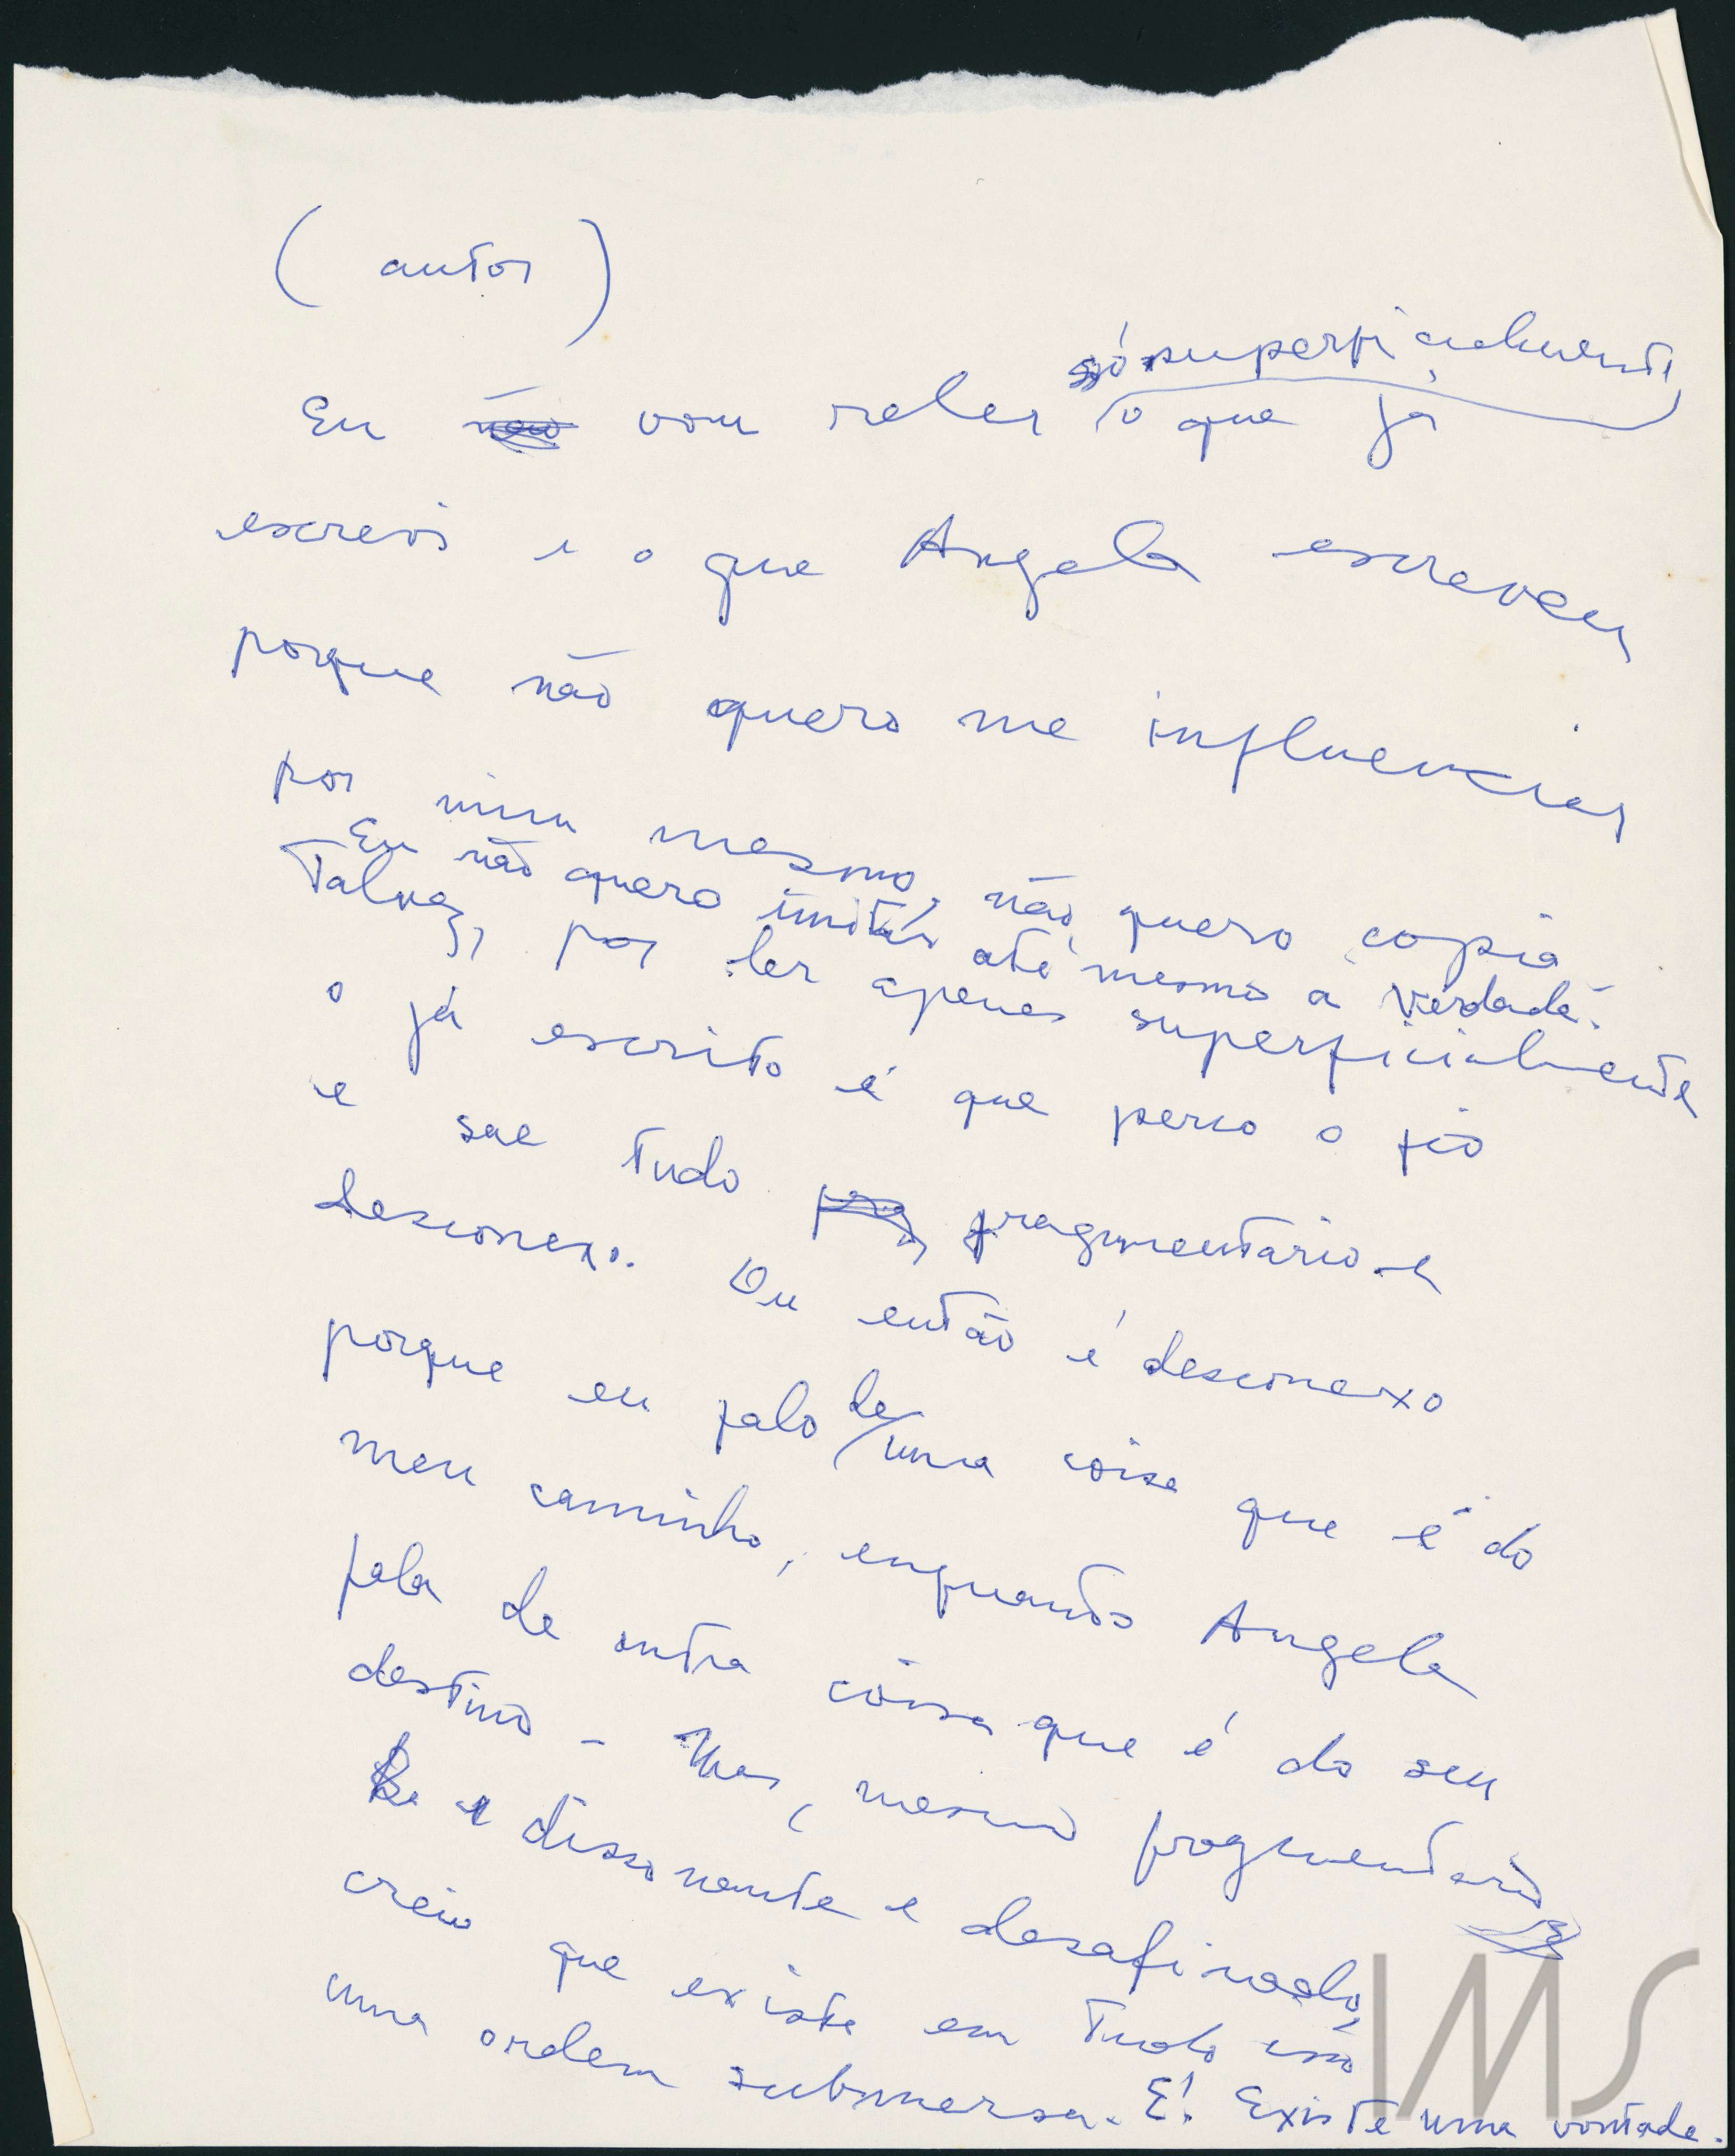 (autor)
só superficialmente
Eu não vou reler o que já
escrevi e o que Angela escreveu
porque não quero me influenciar
por mim mesmo, não quero copiá
Eu não quero imitar até mesmo a verdade.
Talvez, por ler apenas superficialmente
o já escrito é que perco o fio
e sae tudo fragmentario e
desconexo. Ou então é desconexo
porque eu falo de uma coisa que é do
meu caminho, enquanto Angela
fala de outra coisa que é do seu
destino - Mas, mesmo fragmentario
e dissonante e desafinado,
creio que existe em tudo isso
uma ordem submersa. E! Existe uma vontade.
IMS